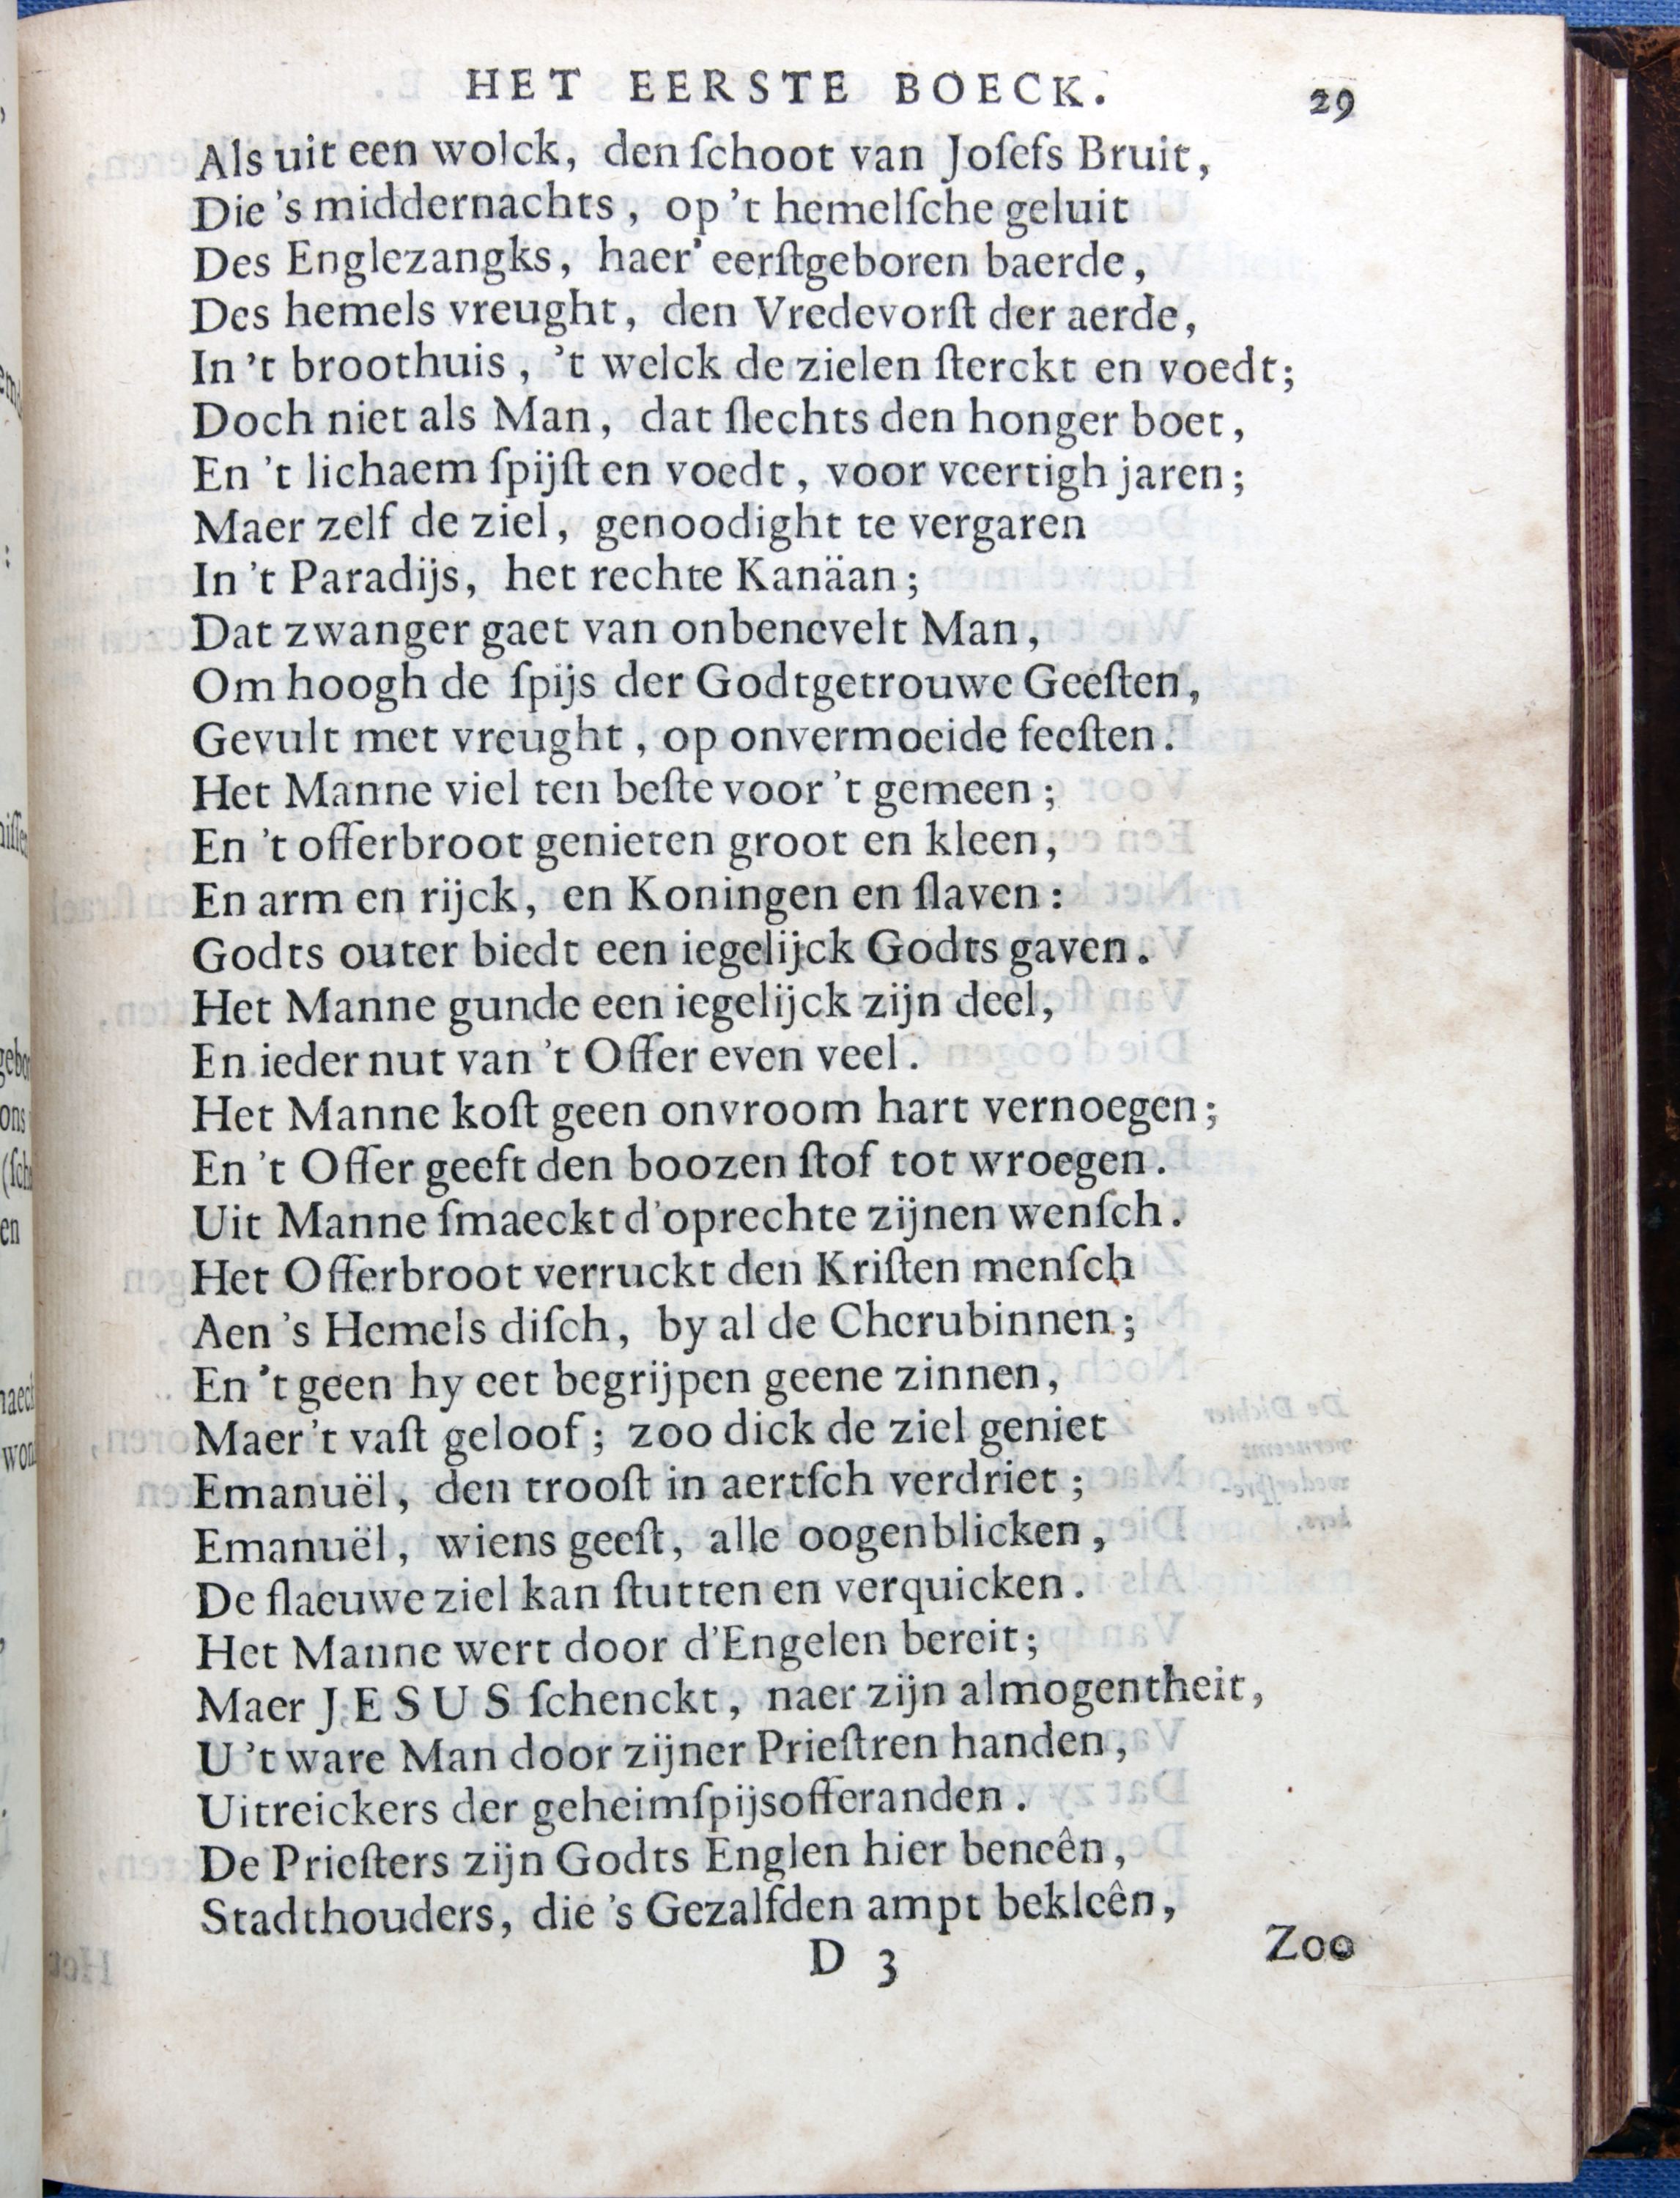 HET EERSTE BOECK. 29
Als uit een wolck, den ſchoot van Joſefs Bruit,
Die 's middernachts, op 't hemelſche geluit
Des Englezangks, haer' eerſtgeboren baerde,
Des hemels vreught, den Vredevorſt der aerde,
In 't broothuis, 't welck de zielen ſterckt en voedt;
Doch niet als Man, dat ſlechts den honger boet,
En 't lichaem ſpijſt en voedt, voor veertigh jaren;
Maer zelf de ziel, genoodight te vergaren
In 't Paradijs, het rechte Kanäan;
Dat zwanger gaet van onbenevelt Man,
Om hoogh de ſpijs der Godtgetrouwe Geeſten,
Gevult met vreught, op onvermoeide feeſten.
Het Manne viel ten beſte voor 't gemeen;
En 't offerbroot genieten groot en kleen,
En arm en rijck, en Koningen en ſlaven:
Godts outer biedt een iegelijck Godts gaven.
Het Manne gunde een iegelijck zijn deel,
En ieder nut van 't Offer even veel.
Het Manne koſt geen onvroom hart vernoegen;
En 't Offer geeft den boozen ſtof tot wroegen.
Uit Manne ſmaeckt d'oprechte zijnen wenſch.
Het Offerbroot verruckt den Kriſten menſch
Aen 's Hemels diſch, by al de Cherubinnen;
En 't geen hy eet begrijpen geene zinnen,
Maer 't vaſt geloof; zoo dick de ziel geniet
Emanuël, den trooſt in aertſch verdriet;
Emanuël, wiens geeſt, alle oogenblicken,
De flaeuwe ziel kan ſtutten en verquicken.
Het Manne wert door d'Engelen bereit;
Maer JESUS ſchenckt, naer zijn almogentheit,
U 't ware Man door zijner Prieſtren handen,
Uitreickers der geheimſpijsofferanden.
De Prieſters zijn Godts Englen hier beneên,
Stadthouders, die 's Gezalfden ampt bekleên,
D 3 Zoo